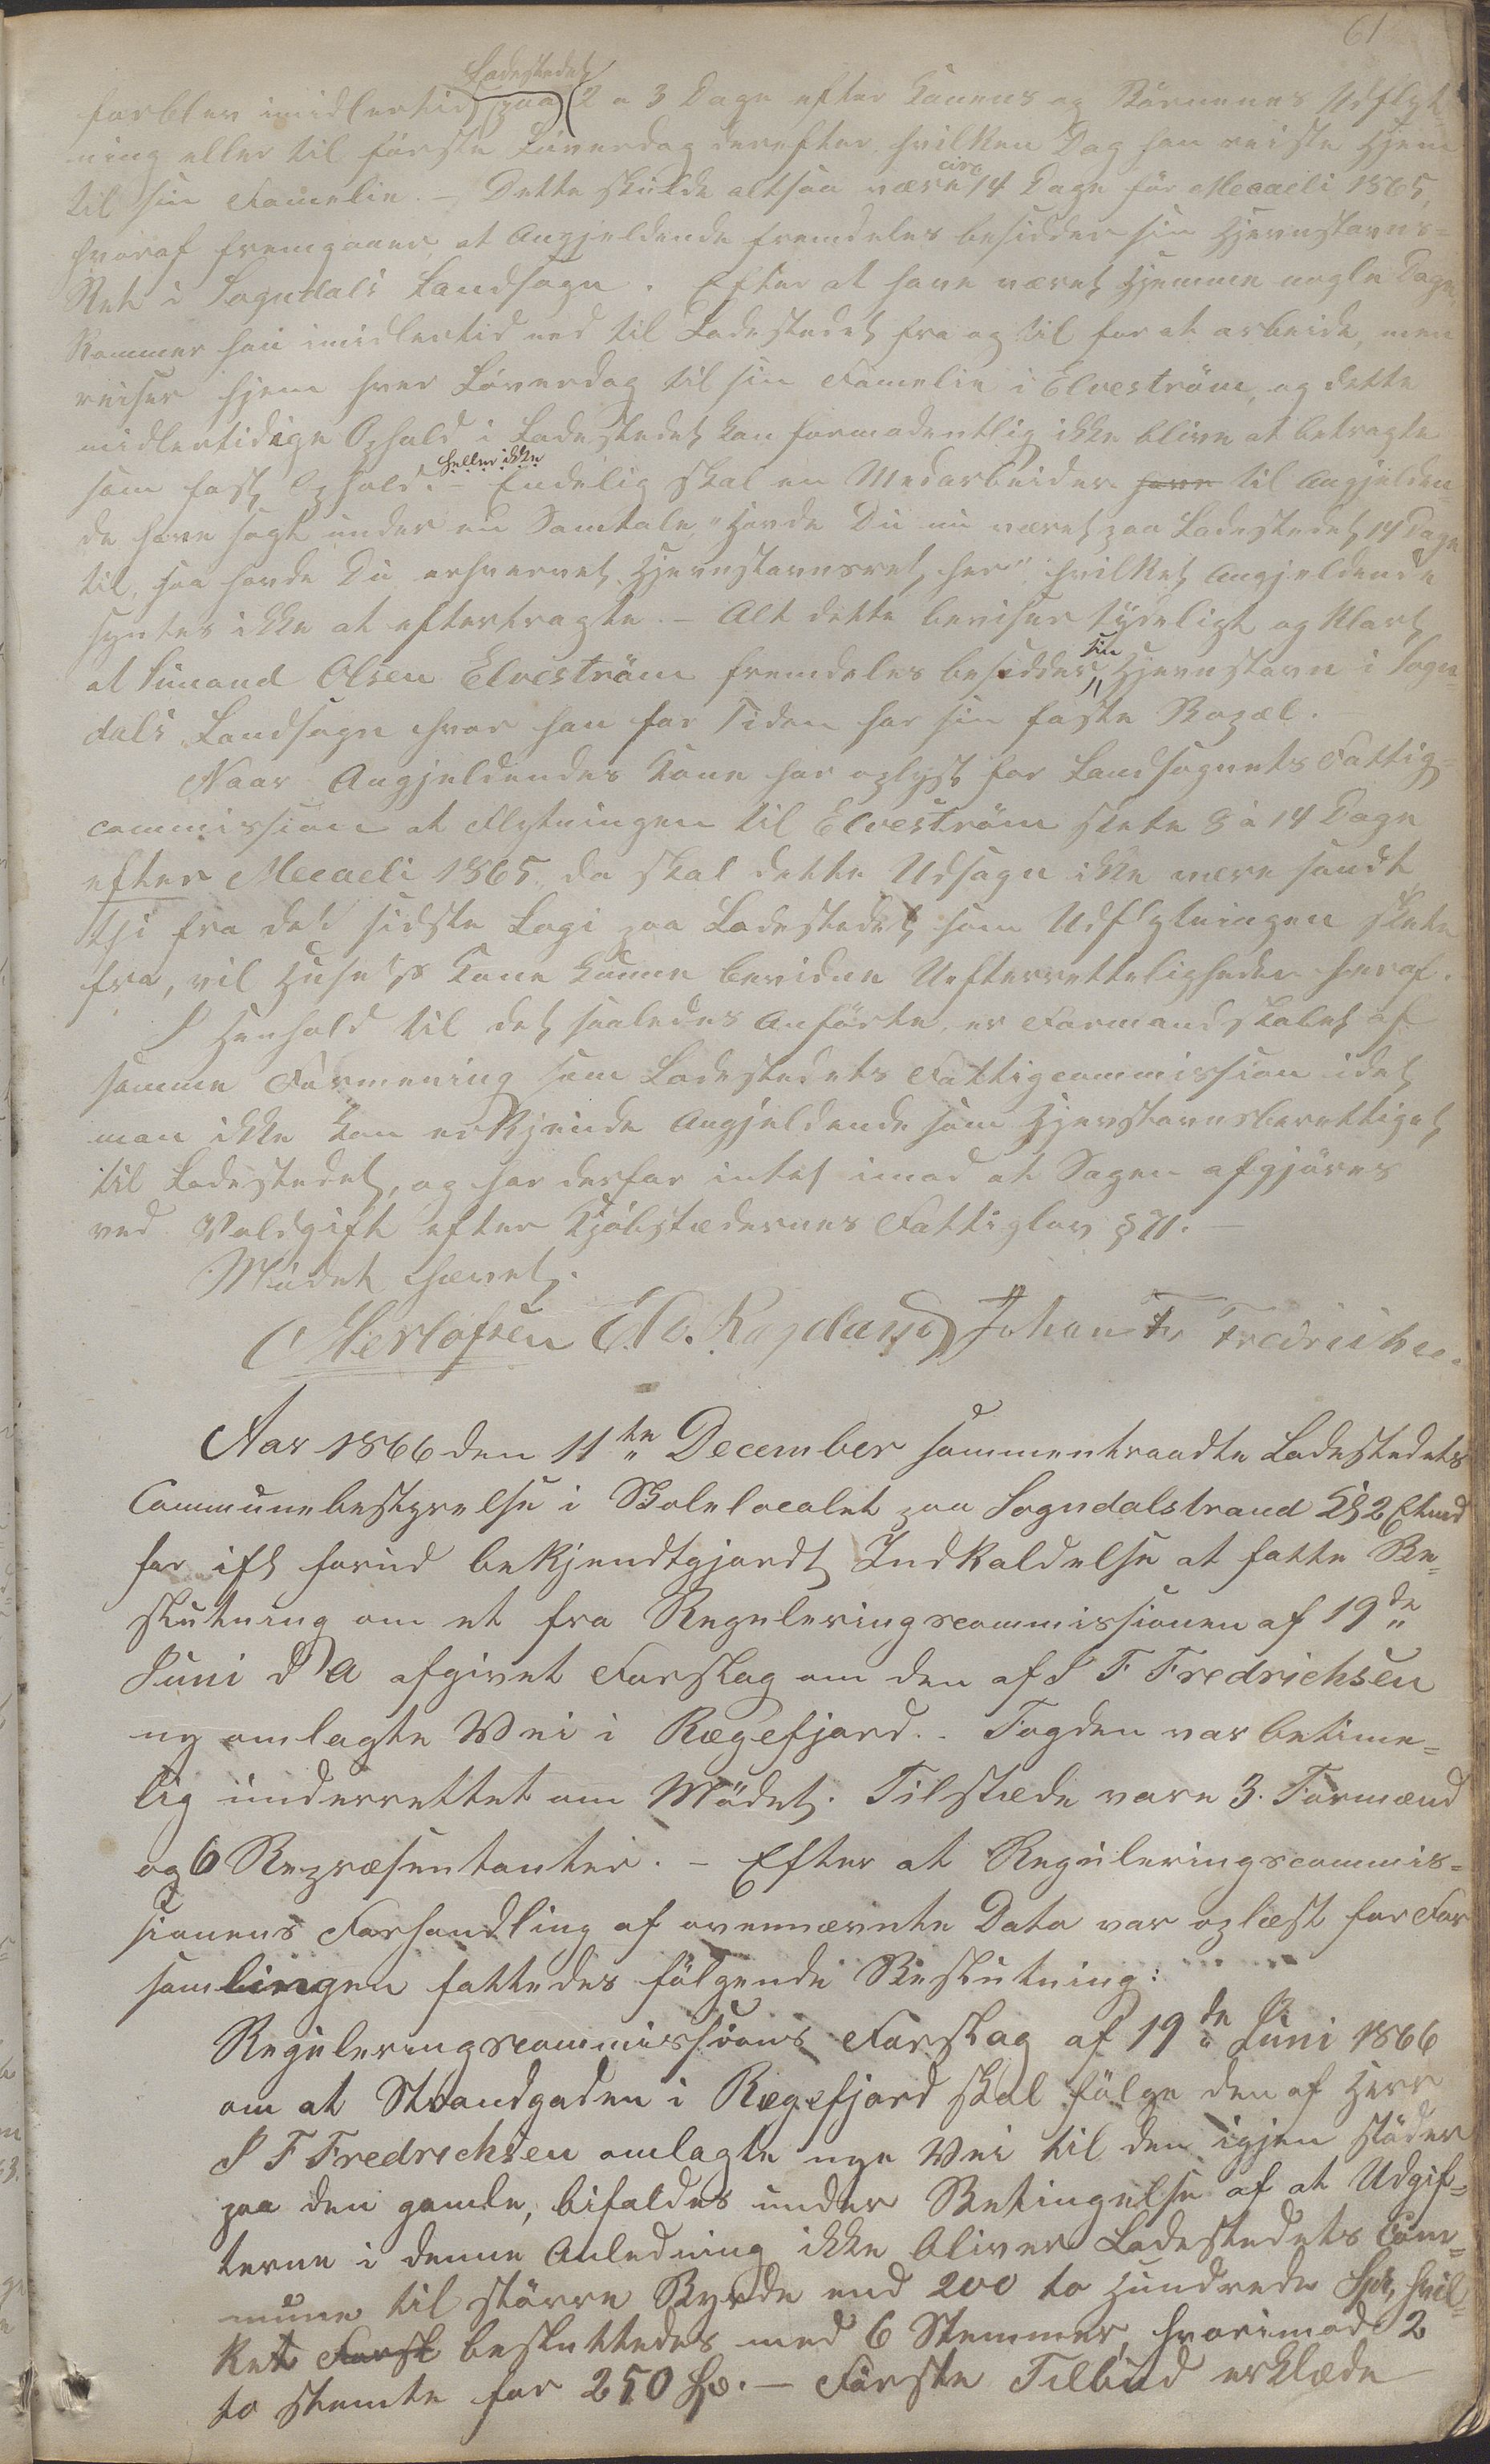 61
forblev imidlertid paa Ladestedet 2 a 3 Dage efter Konens og Börnenes Udflyt-
ning eller til förste Löverdag derefter, hvilken Dag han reiste hjem
til sin Famelie. – Dette skulde altsaa være circ 14 Dage för Mecaeli 1865,
hvoraf fremgaaer, at Angjeldende fremdeles besidder sin Hjemstavns=
Ret i Sogndals Landsogn. Efter at have været hjemme nogle Dage
kommer han imidlertid ned til Ladestedet fra og til for at arbeide, men
reiser hjem hver Löverdag til sin Famelie i Elveström, og dette
midlertidige Ophold i Ladestedet kan formodentlig ikke blive at betragte
som fast Ophold. – heller ikke Endelig skal en Medarbeider have til Angjelden
de have sagt under en Samtale, "Havde Du nu været paa Ladestedet 14 Dage
til, saa havde Du erhvervet Hjemstavnsret her" hvilket Angjeldende
syntes ikke at eftertragte. – Alt dette beviser tydeligt og klart
at Simand Olsen Elveström fremdeles besidder sin Hjemstavn i Sogn=
dals Landsogn hvor han for Tiden har sin faste Bopæl.
Naar Angjeldendes Kone har oplyst for Landsognets Fattig=
commission at Flytningen til Elveström skete 8 à 14 Dage
efter Mecaeli 1865, da skal dette Udsagn ikke være sandt
thi fra det sidste Logi paa Ladestedet, som Udflytningen skete
fra, vil Husets Kone kunne bevidne Uefterretteligheden heraf.
I Henhold til det saaledes Anförte, er Formandskabet af
samme Formening som Ladestedets Fattigcommission idet
man ikke kan erkjende Angjeldende som Hjemstavnsberettiget
til Ladestedet, og har derfor intet imod at Sagen afgjöres
ved Voldgift efter Kjöbstædernes Fattiglov § 71. –
Mödet hævet.
Herlofsen Johan Fr Fredrichsen
Aar 1866 den 11te December sammentraadte Ladestedets
Communebestyrelse i Skolelocalet paa Sogndalstrand Kl 2 Etmd
for ifl forud bekjendtgjordt Indkaldelse at fatte Be=
slutning om et fra Reguleringscommissionen af 19de
Juni d A afgivet Forslag om den af I F Fredrichsen
ny omlagte Vei i Rægefjord. – Fogden var betime=
lig underrettet om Mödet. Tilstæde vare 3. Formænd
og 6 Repræsentanter. – Efter at Reguleringscommis=
sionens Forhandling af ovennævnte Dato var oplæst for For
samlingen fattedes fölgende Beslutning:
Reguleringscommissions Forslag af 19de Juni 1866
om at Strandgaden i Rægefjord skal fölge den af Herr
I F Fredrichsen omlagte nye Vei til den igjen stöder
paa den gamle, bifaldes under Betingelse af at Udgif=
terne i denne Anledning ikke bliver Ladestedets Com=
mune til större Byrde end 200 to Hundrede Spd, hvil=
ket Forsl besluttedes med 6 Stemmer, hvorimod 2
to stemte for 250 Spd. – Förste Tilbud erklæde